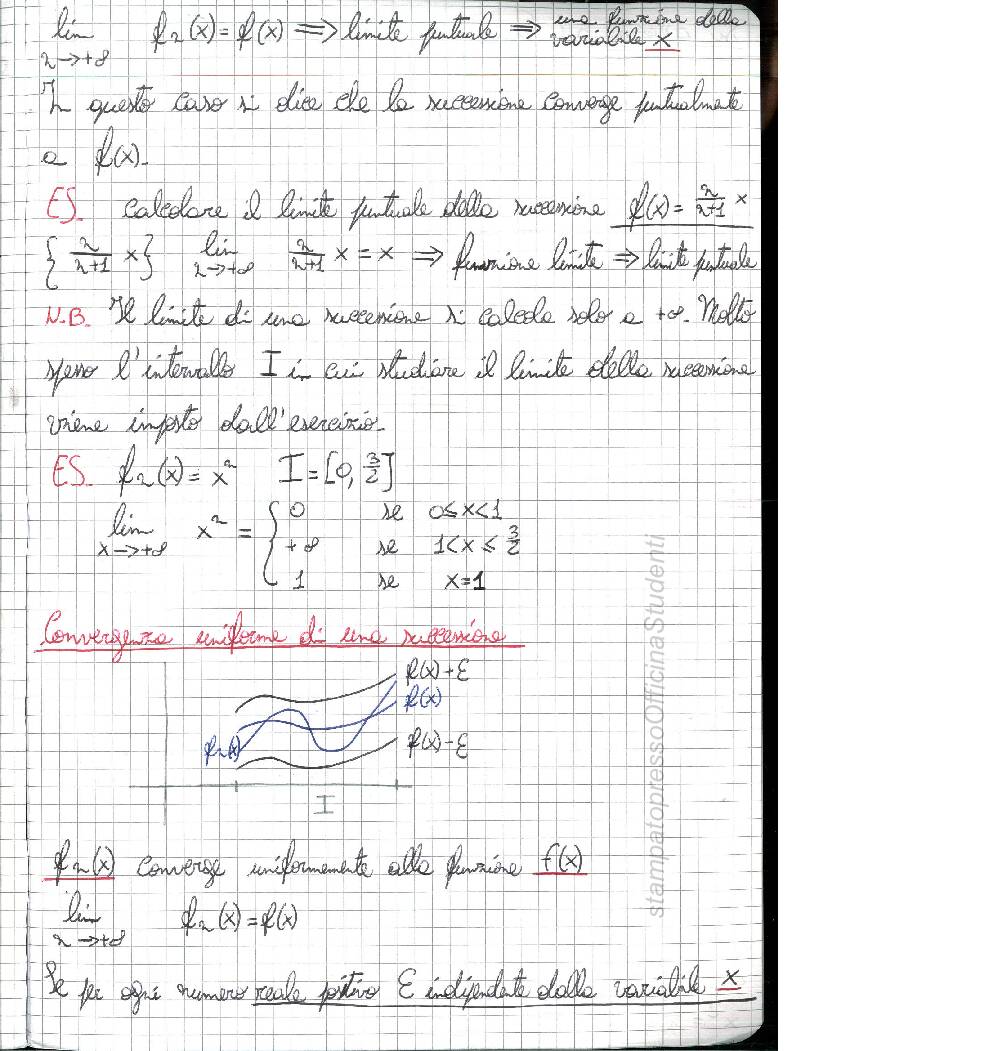 lim f_n(x) = f(x) ⟹ limite puntuale ⟹ una funzione della variabile x
n→+∞
In questo caso si dice che la successione converge puntualmente
a f(x).
ES. Calcolare il limite puntuale della successione f(x) = n/(n+1) x
{n/(n+1) x} lim n/(n+1) x = x ⟹ funzione limite ⟹ limite puntuale
n→+∞
N.B. Il limite di una successione si calcola solo a +∞. Molto
spesso l'intervallo I in cui studiare il limite della successione
viene imposto dall'esercizio.
ES. f_n(x) = x^n I = [0, 3/2]
lim x^n = { 0 se 0≤x<1
x→+∞ +∞ se 1<x≤3/2
1 se x=1
Convergenza uniforme di una successione
f(x)+ε
f(x)
f_n(x)
f(x)-ε
I
f_n(x) converge uniformemente alla funzione f(x)
lim f_n(x) = f(x)
n→+∞
Se per ogni numero reale positivo ε indipendente dalla variabile x
stampatopressoOfficinaStudenti